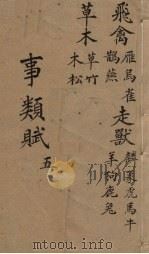 飛禽 雁烏雀
鵲燕
走獸 麟象虎馬牛
羊狗鹿兔
草木 草竹
木松
事類賦 五
http://www.duxiu.com